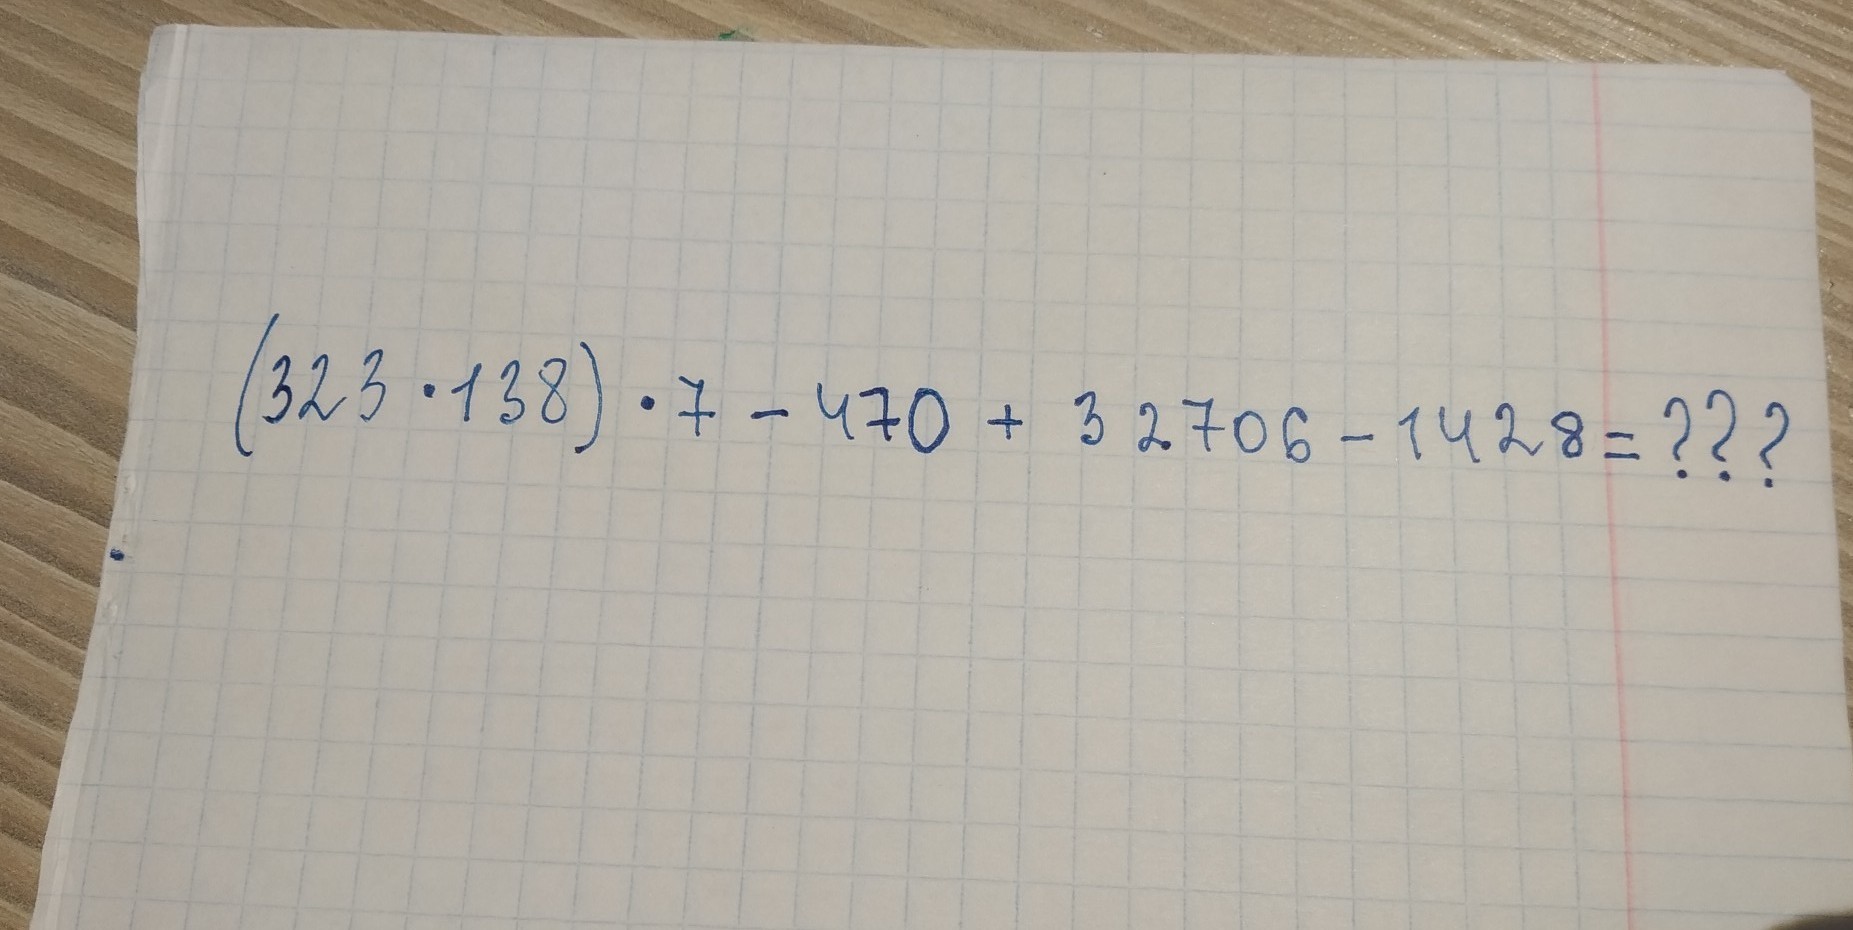 (323 · 138) · 7 - 470 + 32706 - 1428 = ???